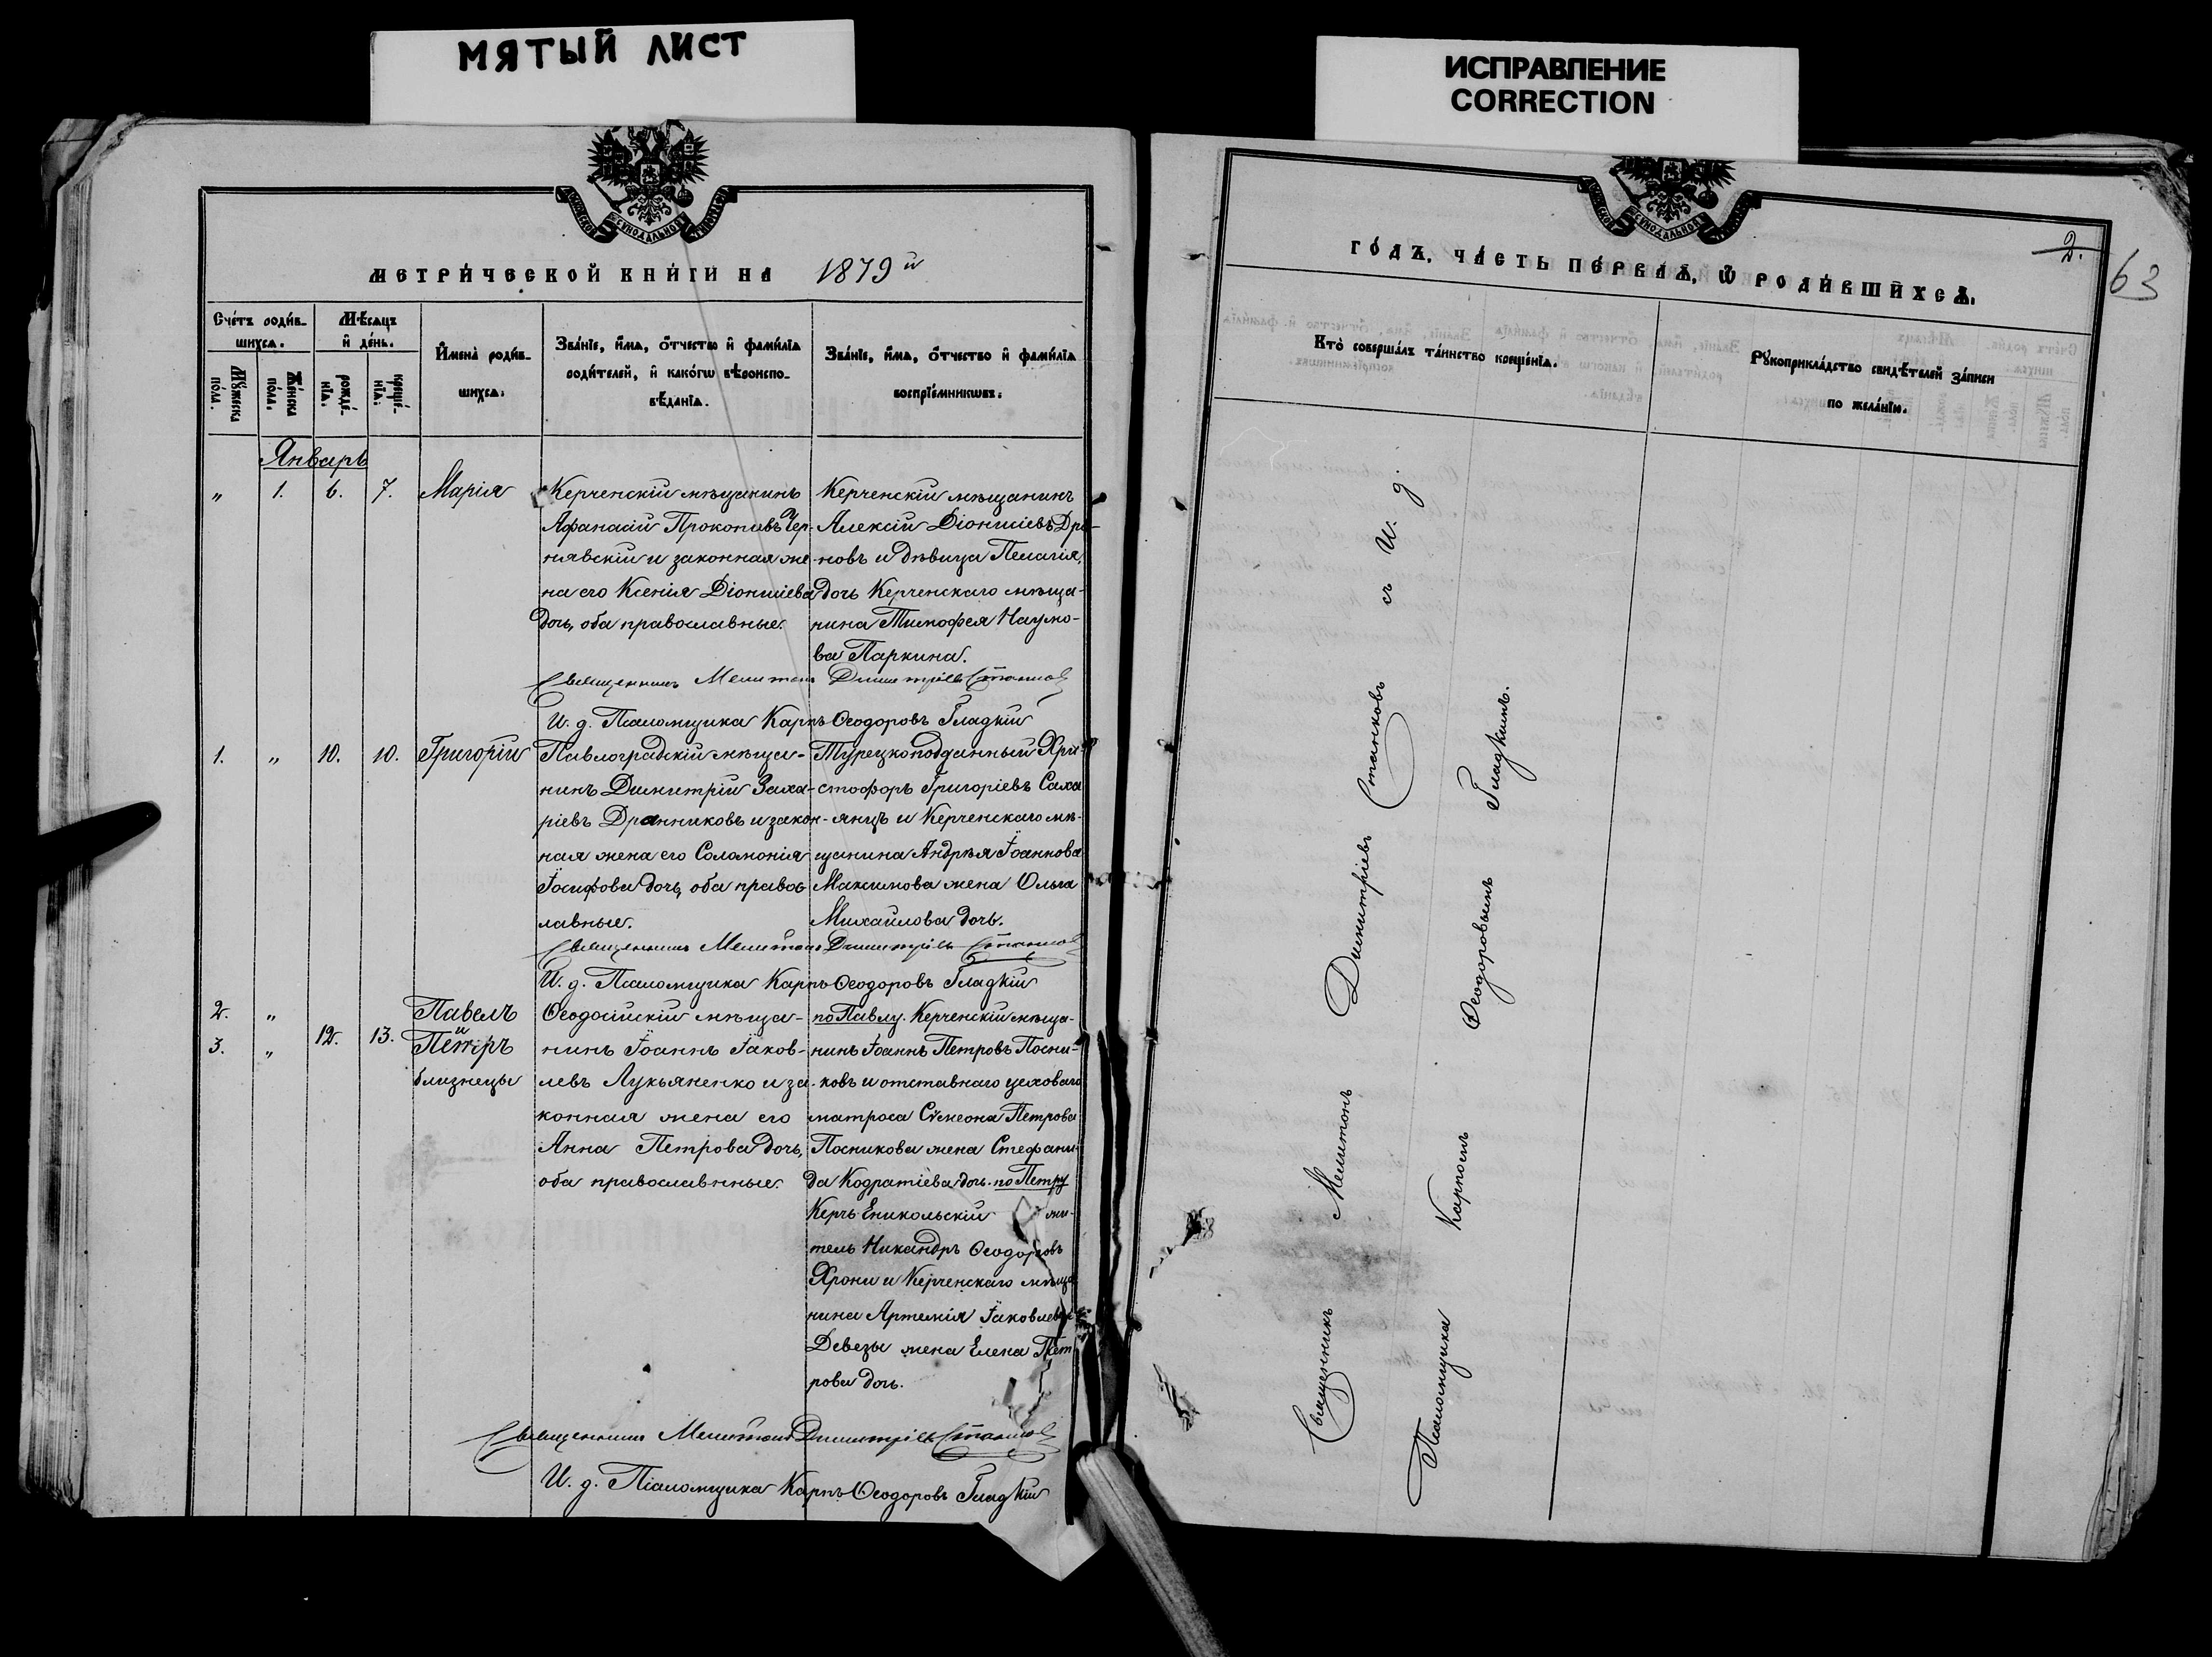 МЯТЫЙ ЛИСТ
ИСПРАВЛЕНИЕ
CORRECTION
МЕТРИ́ЧЕСКОЙ КНИ́ГИ НА 1879й
Сче́тъ роди́в-
шихсѧ.
Мѣ́сѧцъ
и҆ де́нь.
Мꙋ́жеска
пола.
Же́нска
по́ла.
рожде́-
нїѧ.
креще́-
нїѧ.
И҆мена̀ роди́в-
шихсѧ.
Зва́нїе, и҆́мѧ, ѻ҆́тчество и҆ фами́лїѧ
роди́телей, и҆ како́гѡ вѣроиспо-
вѣ́данїѧ.
Зва́нїе, и҆́мѧ, ѻ҆́тчество и҆ фами́лїѧ
воспрїе́мникѡвъ.
Январь
„ 1. 6. 7. Марія
Керченскій мѣщанинъ
Афанасій Прокопіевъ Чер-
нявскій и законная же-
на его Ксенія Діонисіева
дочь, оба православные.
Керченскій мѣщанинъ
Алексій Діонисіевъ Дра-
новъ и дѣвица Пелагія,
дочь Керченскаго мѣща-
нина Тимофея Наумо-
ва Паркина.
Священникъ Мелитонъ Димитріевъ Станковъ
И. д. Псаломщика Карпъ Ѳеодоровъ Гладкій
1. „ 10. 10. Григорій
Павлоградскій мѣща-
нинъ Димитрій Заха-
ріевъ Дранниковъ и закон-
ная жена его Соломонія
Іосифова дочь, оба правос
лавные.
Турецкоподданный Хри-
стофоръ Григоріевъ Саха
янцъ и Керченскаго мѣ-
щанина Андрея Іоаннова
Максимова жена Ольга
Михайлова дочь.
Священникъ Мелитонъ Димитріевъ Станковъ
И. д. Псаломщика Карпъ Ѳеодоровъ Гладкій
2. „ Павелъ
и
3. „ 12. 13. Петръ
близнецы
Ѳеодосійскій мѣща-
нинъ Іоаннъ Іаков-
левъ Лукьяненко и за-
конная жена его
Анна Петрова дочь,
оба православные.
по Павлу. Керченскій мѣща-
нинъ Іоаннъ Петровъ Посни-
ковъ и отставнаго цеховаго
матроса Сѵмеона Петрова
Посникова жена Стефани-
да Кодратіева дочь. по Петру
Керчь Еникольскій жи-
тель Никандръ Ѳеодоровъ
Хрони и Керченскаго мѣща
нина Артемія Іаковлева
Девезы жена Елена Пет
рова дочь.
Священникъ Мелитонъ Димитріевъ Станковъ
И. д. Псаломщика Карпъ Ѳеодоровъ Гладкій
2.
63
ГО́ДЪ, ЧА́СТЬ ПЕ́РВАѦ, Ѿ РОДИ́ВШИХСѦ.
Кто̀ соверша́лъ та́инство креще́нїѧ.
Рꙋкоприкла́дство свидѣ́телей за́писи
по жела́нїю.
Священникъ Мелитонъ Димитріевъ Станковъ съ И. д.
Псаломщика Карпомъ Ѳеодоровымъ Гладкимъ.